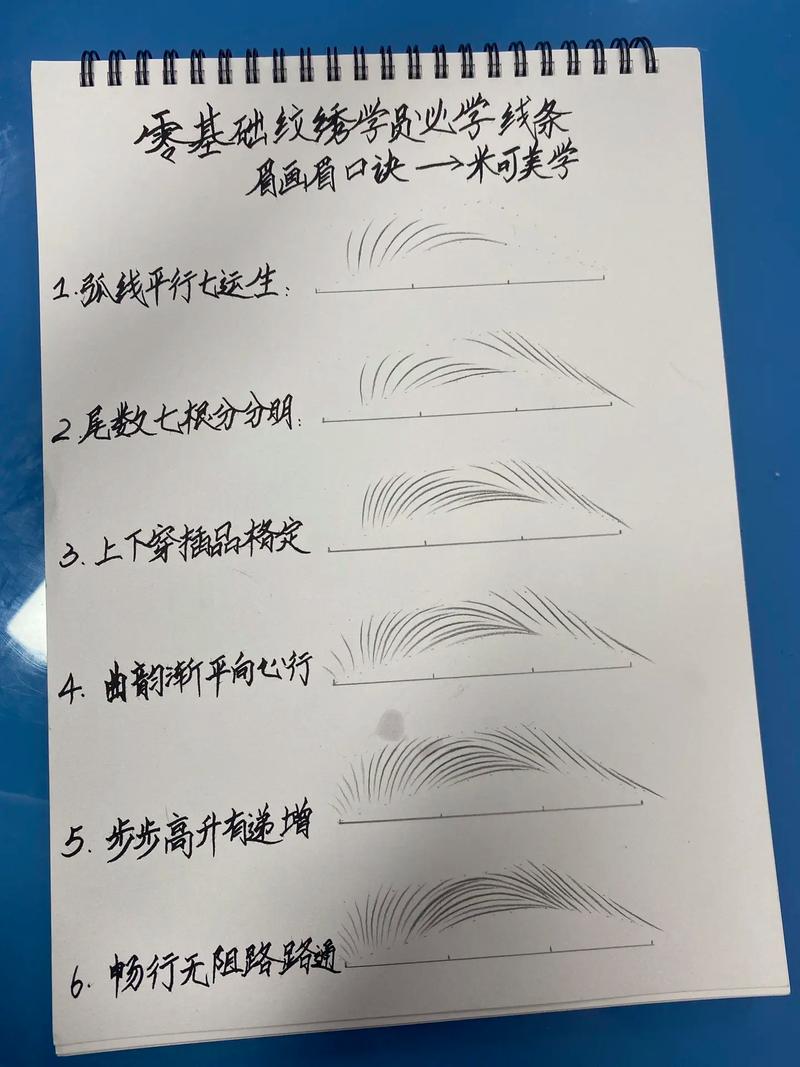 零基础纹绣学员必学线条
眉画眉口诀→米可美学
1.弧线平行七运生:
2.尾数七根分分明:
3.上下穿插品格定
4.曲韵渐平向心行
5.步步高升有递增
6.畅行无阻路路通